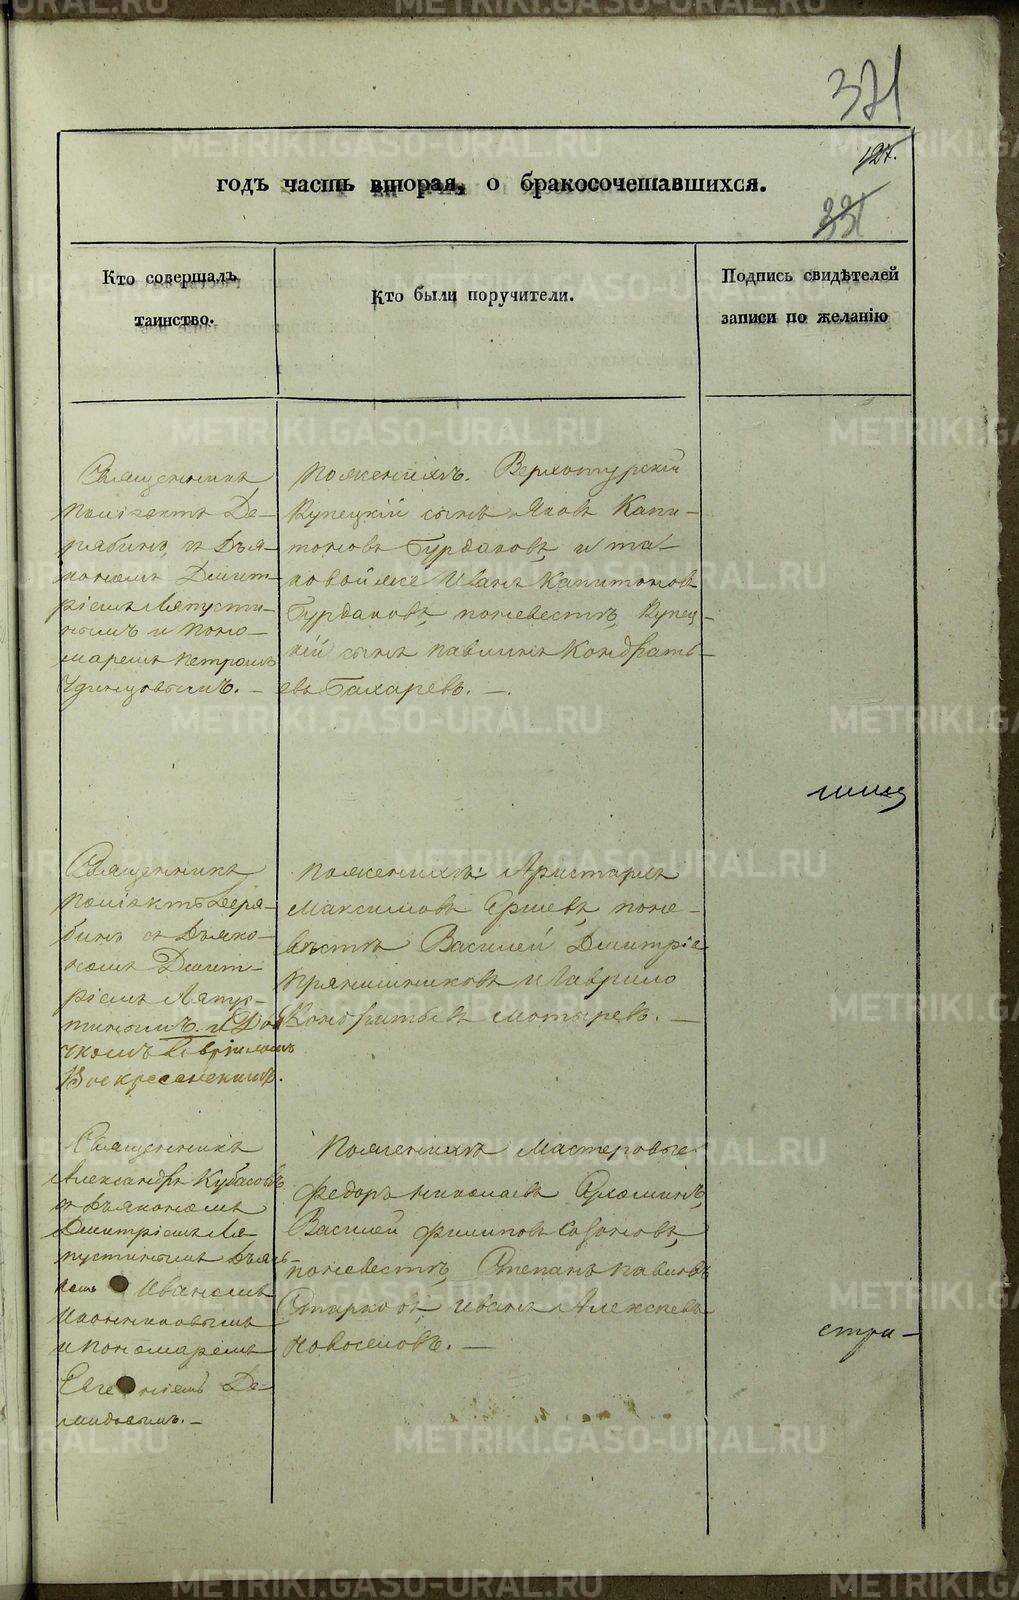 371
127.
годъ часть вторая, о бракосочетавшихся.
331
Кто совершалъ
таинство.
Кто были поручители.
Подпись свидѣтелей
записи по желанію
Священникъ
Поліэктъ Де-
рябинъ съ Дья-
кономъ Дмит-
ріемъ Ляпусти-
нымъ и Поно-
маремъ Петромъ
Удинцовымъ. —
По женихѣ. Верхотурскій
Купецкій сынъ Яковъ Капи-
тоновъ Бурдаковъ, и та-
ковой же Иванъ Капитоновъ
Бурдаковъ, по невестѣ, Купец-
кій сынъ Павлинъ Кондрать-
евъ Бахаревъ. —.
Священникъ
Поліэктъ Деря-
бинъ съ Дьяко-
номъ Дмит-
ріемъ Ляпус-
тинымъ. и Дья
чкомъ
Воскресенскимъ.
По женихѣ: Аристархъ
Максимовъ Ершевъ, по не-
вѣстѣ Василей Дмитріе
Прянишниковъ и Гаврило
Кондратьевъ Мотыревъ. —
Священникъ
Александръ Кубасовъ
съ Дьякономъ
Дмитріемъ Ля-
пустинымъ Дьяч-
комъ Иваномъ
Иконниковымъ
и пономаремъ
Евгеніемъ Де-
мидовымъ. —
По женихѣ Мастеровые
Федоръ Николаевъ
Василей Филиповъ Сазоновъ,
по невестѣ, Степанъ Павловъ
Старковъ, Иванъ Алексеевъ
Новоселовъ. —
стра-
METRIKI.GASO-URAL.RU